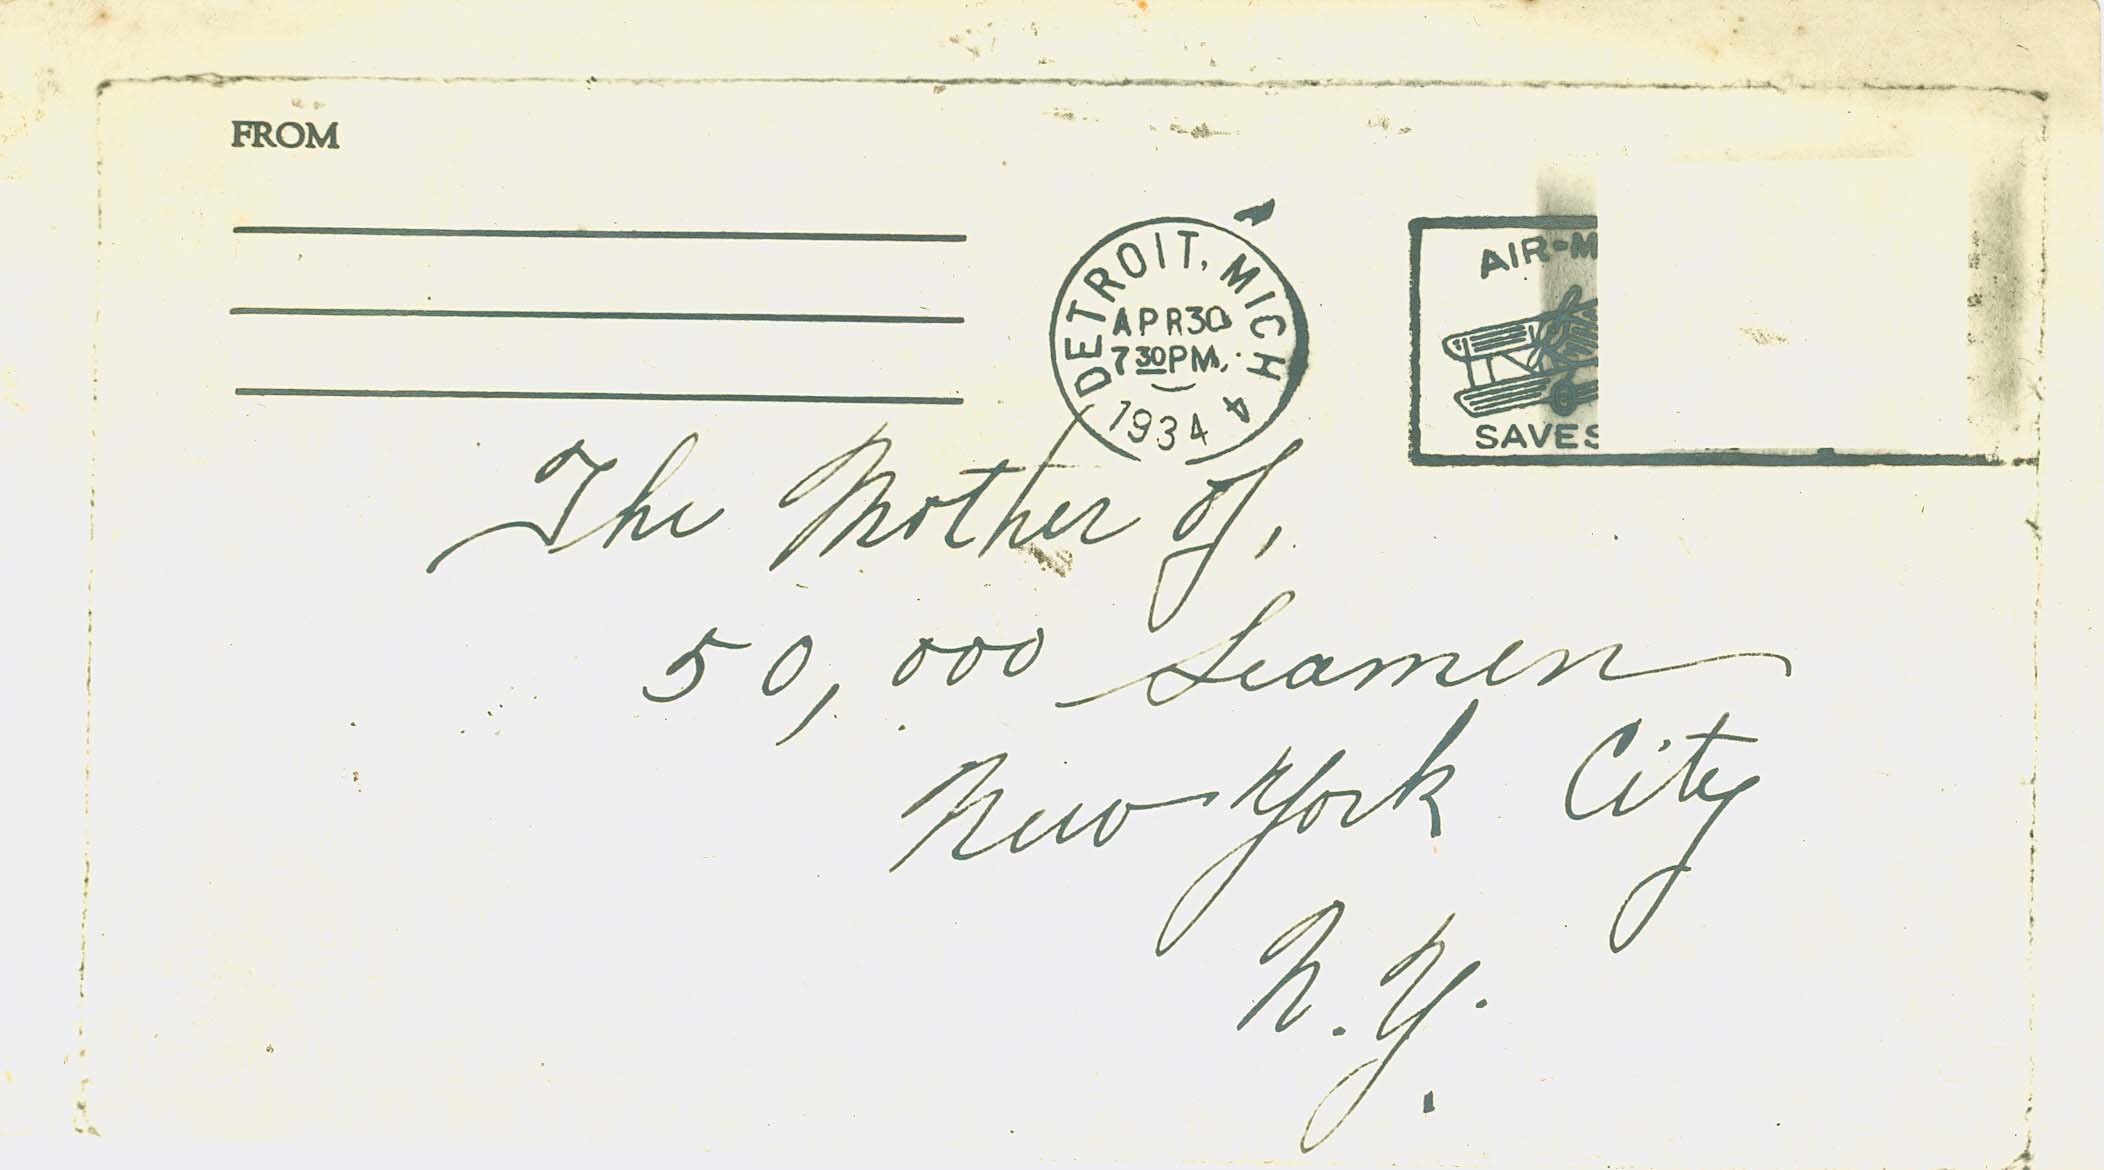 FROM
DETROIT, MICH
APR 30
7 30 PM
1934
4
AIR-M
SAVES
The Mother of,
50,000 Seamen
New York City
N.Y.